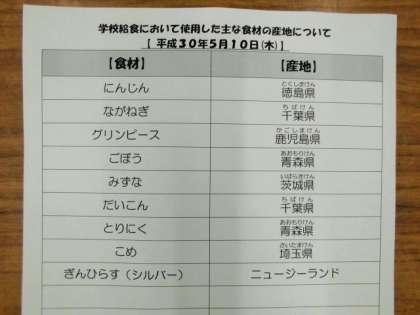 学校給食において使用した主な食材の産地について
【 平成30年5月10日(木)】
【食材】 【産地】
にんじん 徳島県 とくしまけん
ながねぎ 千葉県 ちばけん
グリンピース 鹿児島県 かごしまけん
ごぼう 青森県 あおもりけん
みずな 茨城県 いばらきけん
だいこん 千葉県 ちばけん
とりにく 青森県 あおもりけん
こめ 埼玉県 さいたまけん
ぎんひらす（シルバー） ニュージーランド